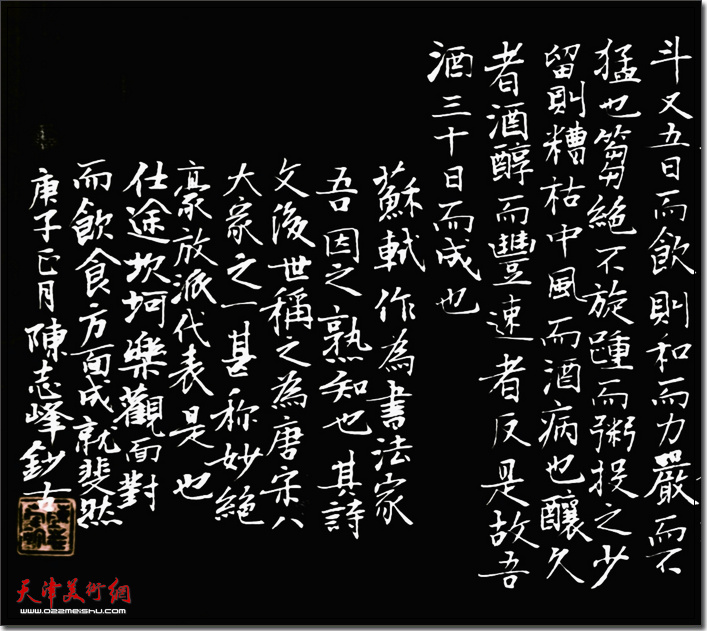 斗又五日而飲則和而力嚴而不
猛也篘絕不旋踵而粥投之少
留則糟枯中風而酒病也釀久
者酒醇而豐速者反是故吾
酒三十日而成也
蘇軾作為書法家
吾因之熟知也其詩
文後世稱之為唐宋八
大家之一甚稱妙絕
豪放派代表是也
仕途坎坷樂觀面對
而飲食方面成就斐然
庚子正月陳志峰鈔古
天津美術網
www.022meishu.com